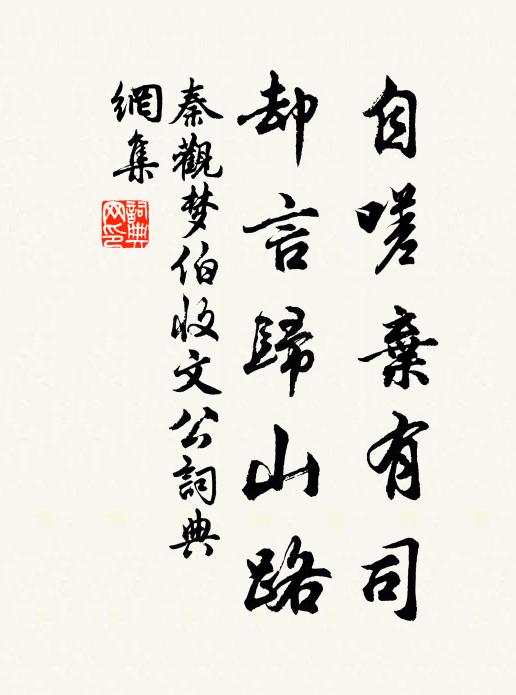 自嗟棄有司
却言歸山路
秦觀梦伯收文公詞典
網集
詞典
网印